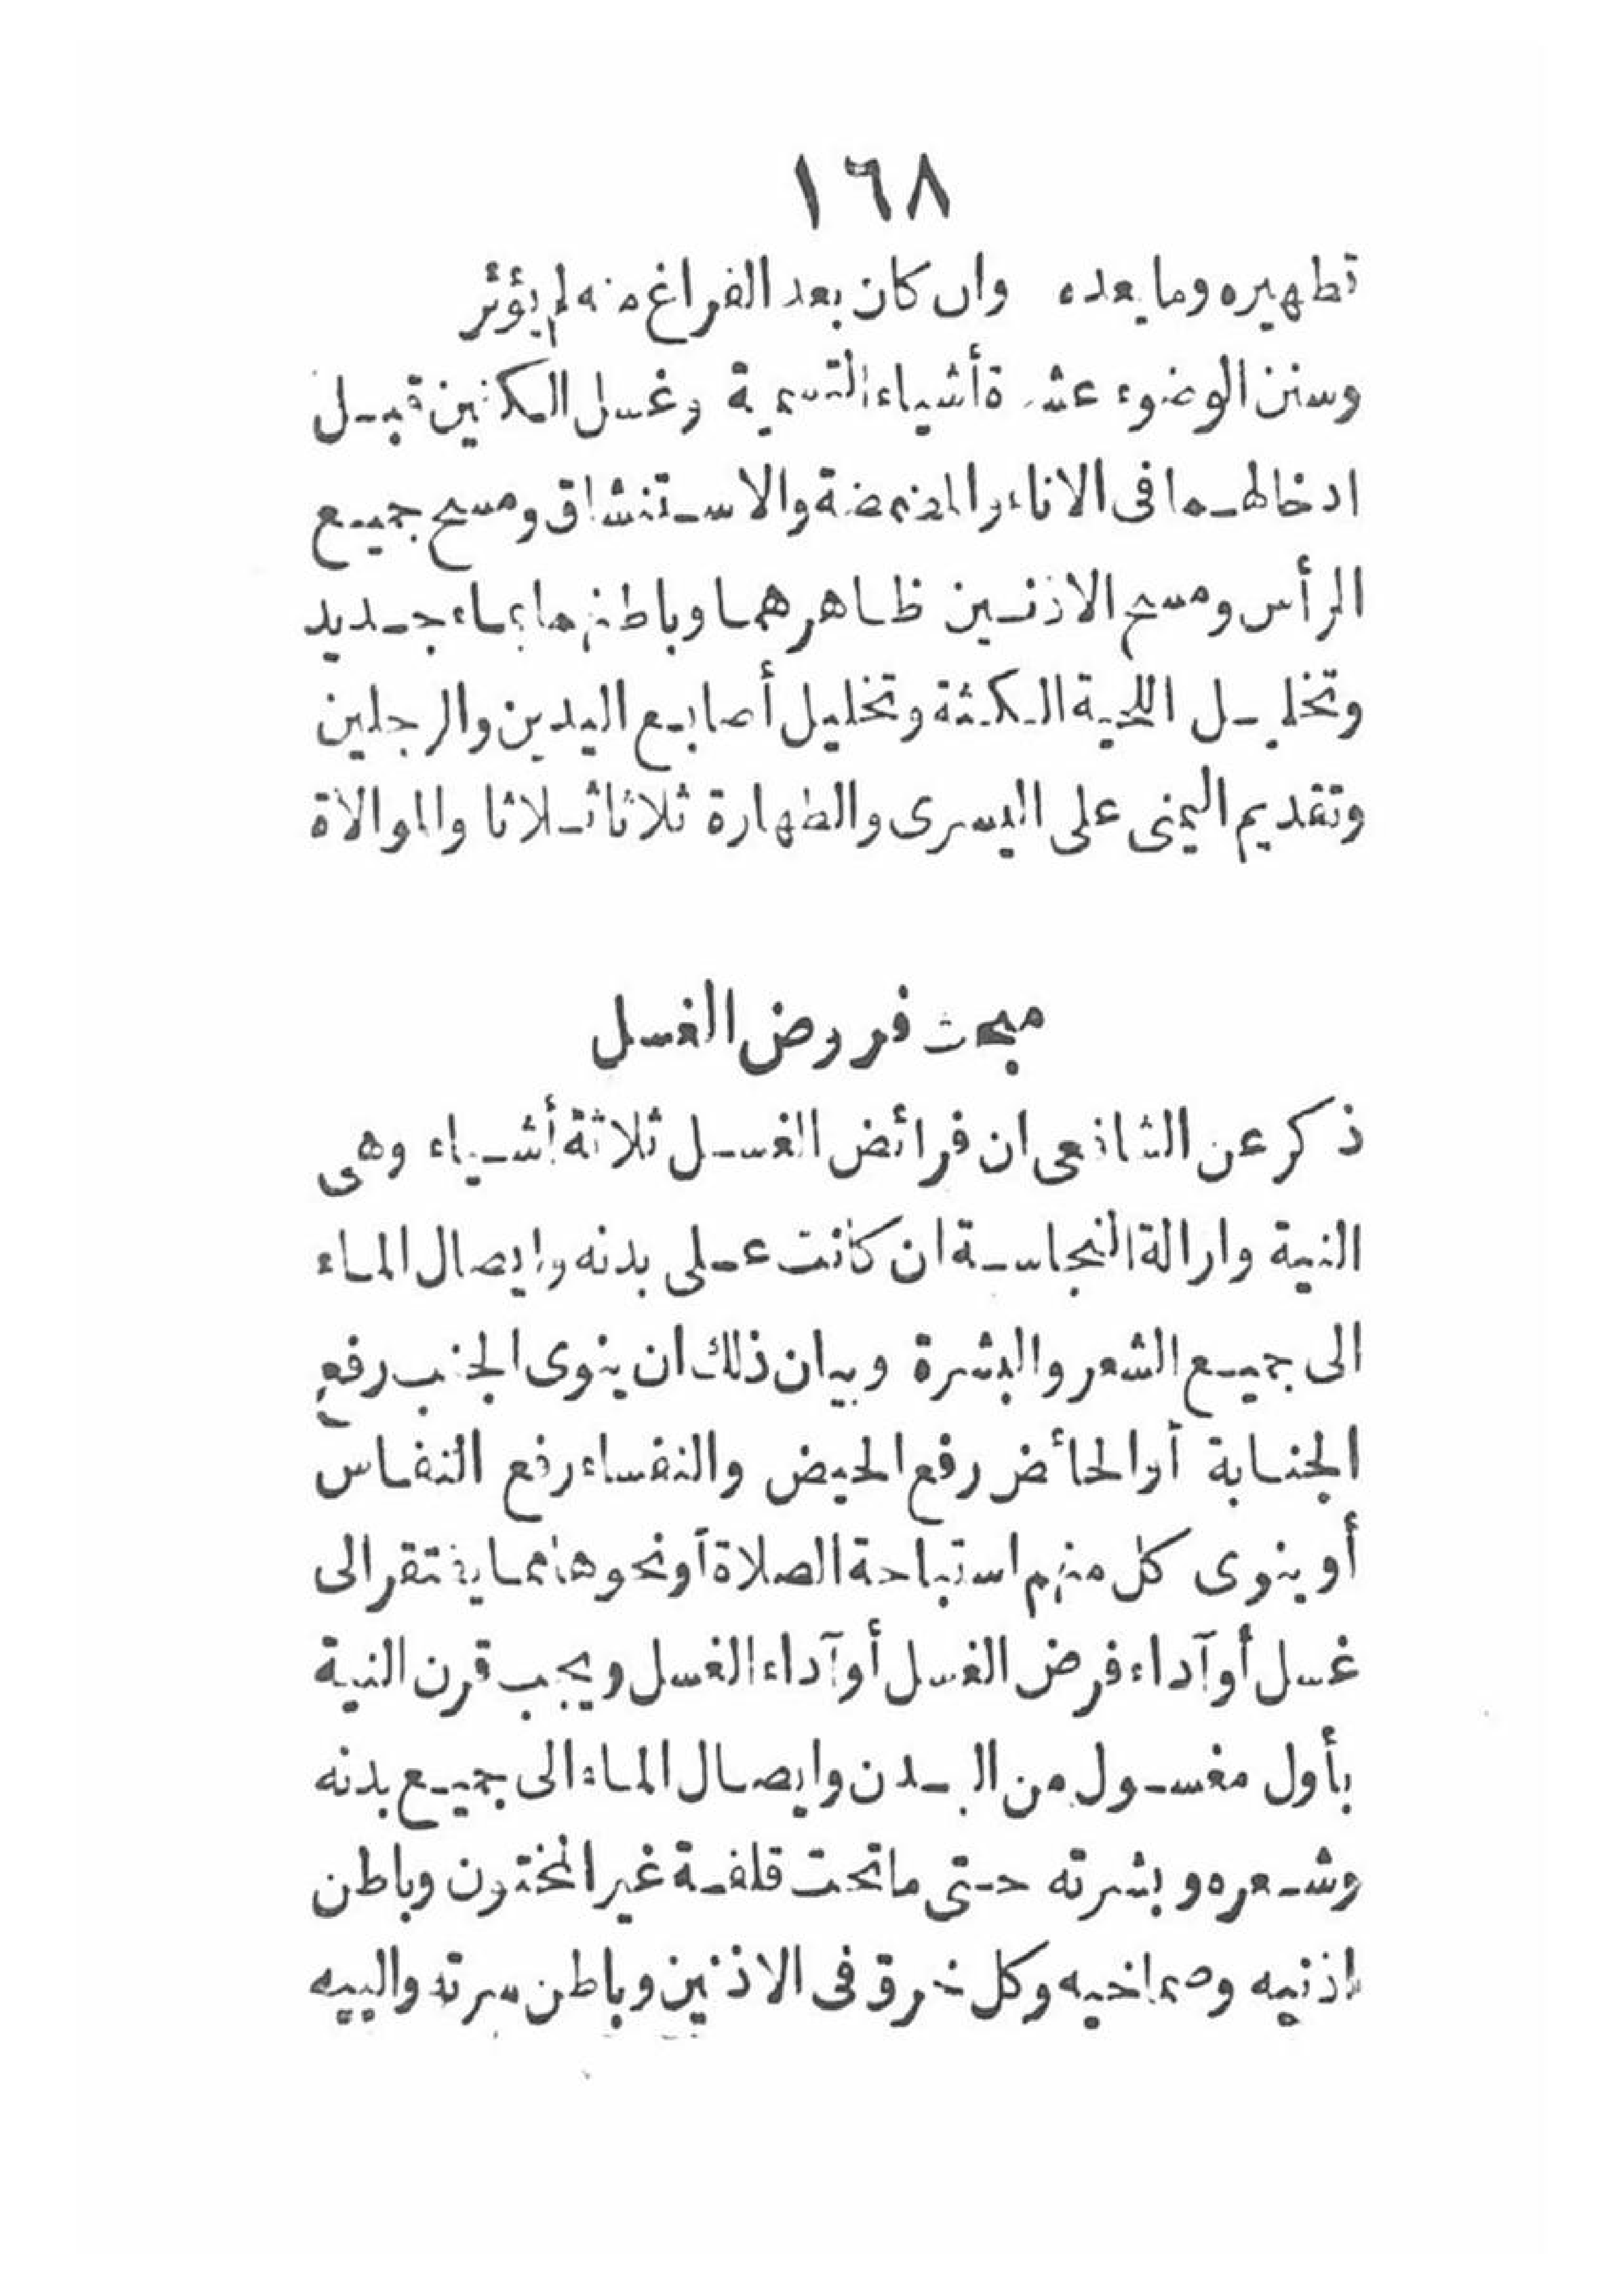 ١٦٨
تطهيره وما بعده وان كان بعد الفراغ منه لم يؤثر
وسنن الوضوء عشرة أشياء التسمية وغسل الكفين قبل
ادخالهما فى الاناء والمضمضة والاستنشاق ومسح جميع
الرأس ومسح الاذنين ظاهرهما وباطنهما بماء جديد
وتخليل اللحية الكثة وتخليل أصابع اليدين والرجلين
وتقديم اليمنى على اليسرى والطهارة ثلاثا ثلاثا والموالاة
مبحث فروض الغسل
ذكر عن الشافعى ان فرائض الغسل ثلاثة أشياء وهى
النية وازالة النجاسة ان كانت على بدنه وايصال الماء
الى جميع الشعر والبشرة وبيان ذلك ان ينوى الجنب رفع
الجنابة أو الحائض رفع الحيض والنفساء رفع النفاس
أو ينوى كل منهم استباحة الصلاة أونحوها مما يفتقر الى
غسل أو آداء فرض الغسل أو آداء الغسل ويجب قرن النية
بأول مغسول من البدن وايصال الماء الى جميع بدنه
وشعره وبشرته حتى ماتحت قلفة غير المختون وباطن
اذنيه وصماخيه وكل خرق فى الاذنين وباطن سرته واليبه